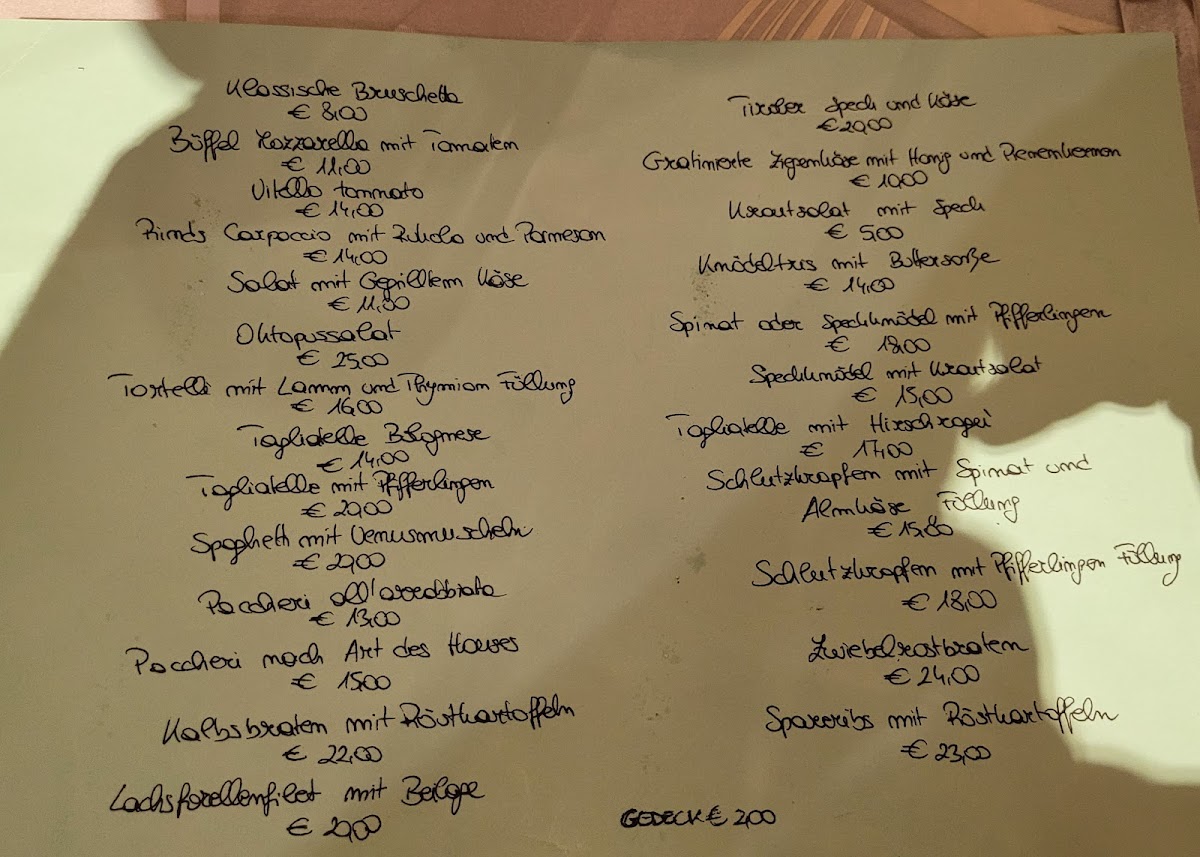 Klassische Bruschetta
€ 8,00
Büffel Mozzarella mit Tomaten
€ 11,00
Vitello tonnato
€ 14,00
Rinds Carpaccio mit Rukola und Parmesan
€ 14,00
Salat mit Gegrilltem Käse
€ 11,80
Oktopussalat
€ 25,00
Tortelli mit Lamm und Thymian Füllung
€ 16,00
Tagliatelle Bolognese
€ 14,00
Tagliatelle mit Pfifferlingen
€ 20,00
Spaghetti mit Venusmuscheln
€ 20,00
Paccheri all'arrabbiata
€ 13,00
Paccheri nach Art des Hauses
€ 15,00
Kalbsbraten mit Röstkartoffeln
€ 22,00
Lachsforellenfilet mit Beilage
€ 20,00
Tiroler Speck und Käse
€ 20,00
Gratinierte Ziegenkäse mit Honig und Pienenkernen
€ 10,00
Krautsalat mit Speck
€ 5,00
Knödeltris mit Buttersoße
€ 14,00
Spinat oder Speckknödel mit Pfifferlingen
€ 18,00
Speckknödel mit Krautsalat
€ 15,00
Tagliatelle mit Hirschragei
€ 17,00
Schlutzkrapfen mit Spinat und
Almkäse Füllung
€ 15,80
Schlutzkrapfen mit Pfifferlingen Füllung
€ 18,00
Zwiebelrostbraten
€ 24,00
Spareribs mit Röstkartoffeln
€ 23,00
GEDECK € 2,00